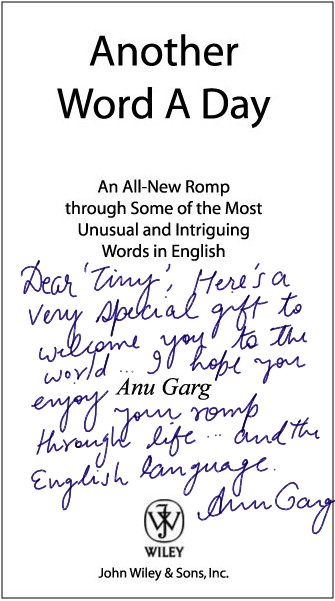 Another
Word A Day
An All-New Romp
through Some of the Most
Unusual and Intriguing
Words in English
Dear 'Tiny', Here's a
very special gift to
welcome you to the
world ... I hope you
Anu Garg
enjoy your romp
through life ... and the
English language.
Anu Garg
WILEY
John Wiley & Sons, Inc.